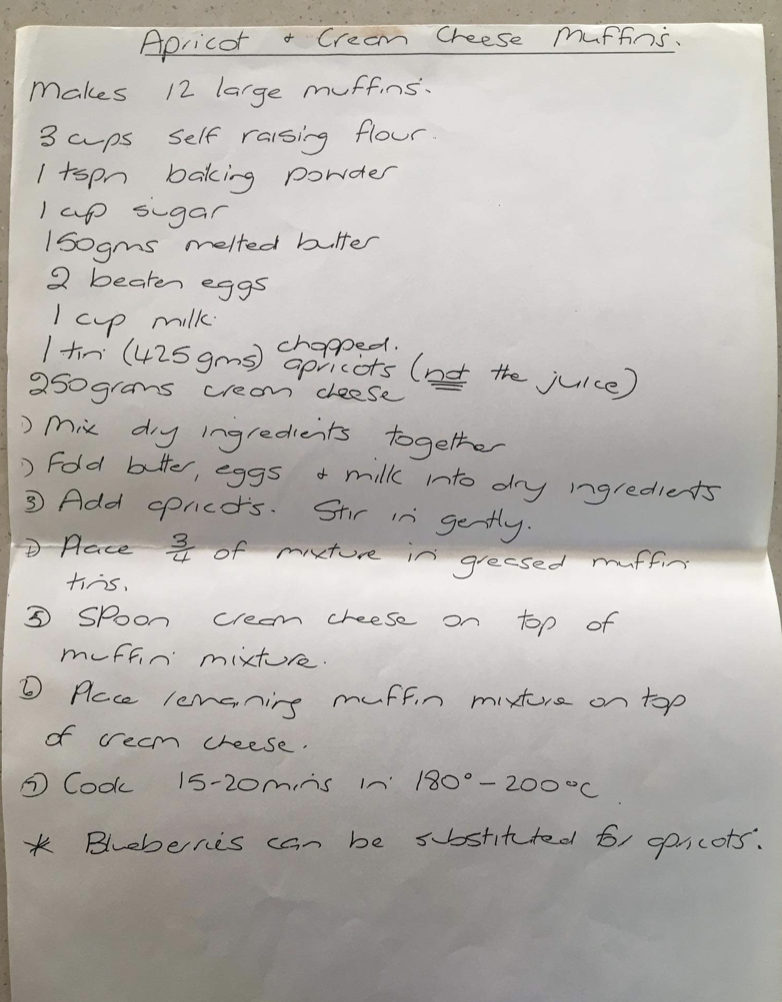 Apricot + Cream Cheese Muffins.
Makes 12 large muffins.
3 cups self raising flour.
1 tspn baking powder
1 cup sugar
150gms melted butter
2 beaten eggs
1 cup milk
1 tin (425gms) chopped. apricots (not the juice)
250grams cream cheese
1) Mix dry ingredients together
2) Fold butter, eggs + milk into dry ingredients
3) Add apricots. Stir in gently.
4) Place 3/4 of mixture in greased muffin
tins.
5) Spoon cream cheese on top of
muffin mixture.
6) Place remaning muffin mixture on top
of cream cheese.
7) Cook 15-20mins in 180° - 200°C
* Blueberries can be substituted for apricots.